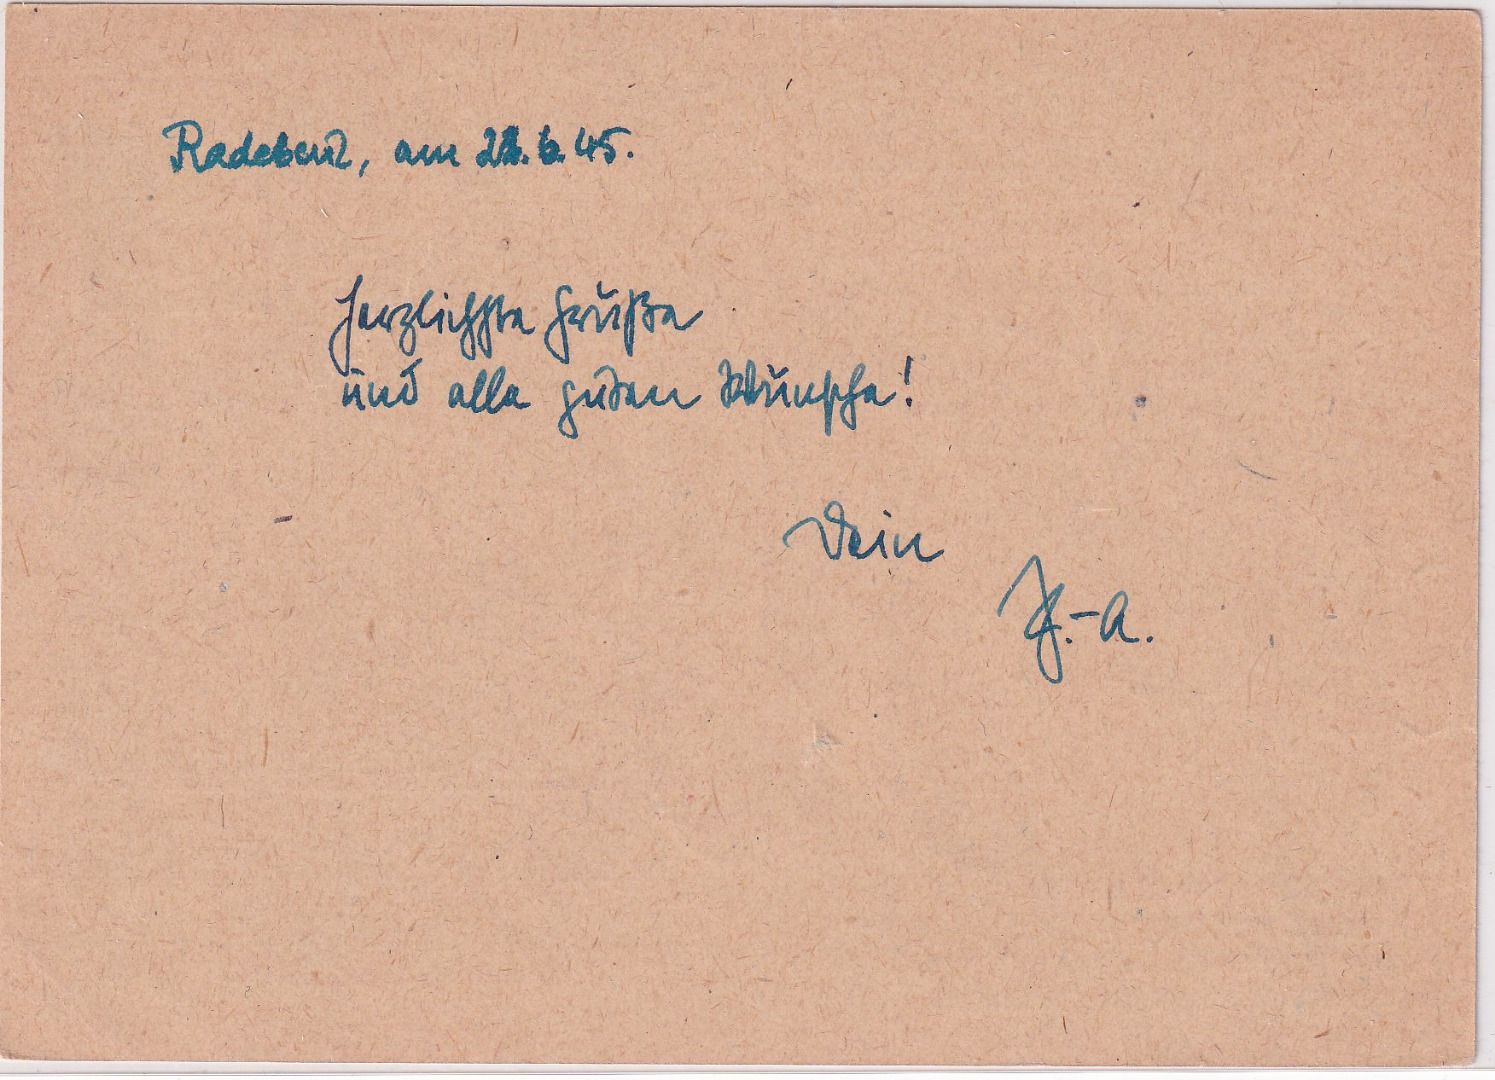 Radebeul, am 28.6.45.
Herzlichste Grüße
und alle guten Wünsche!
Dein
H.-A.